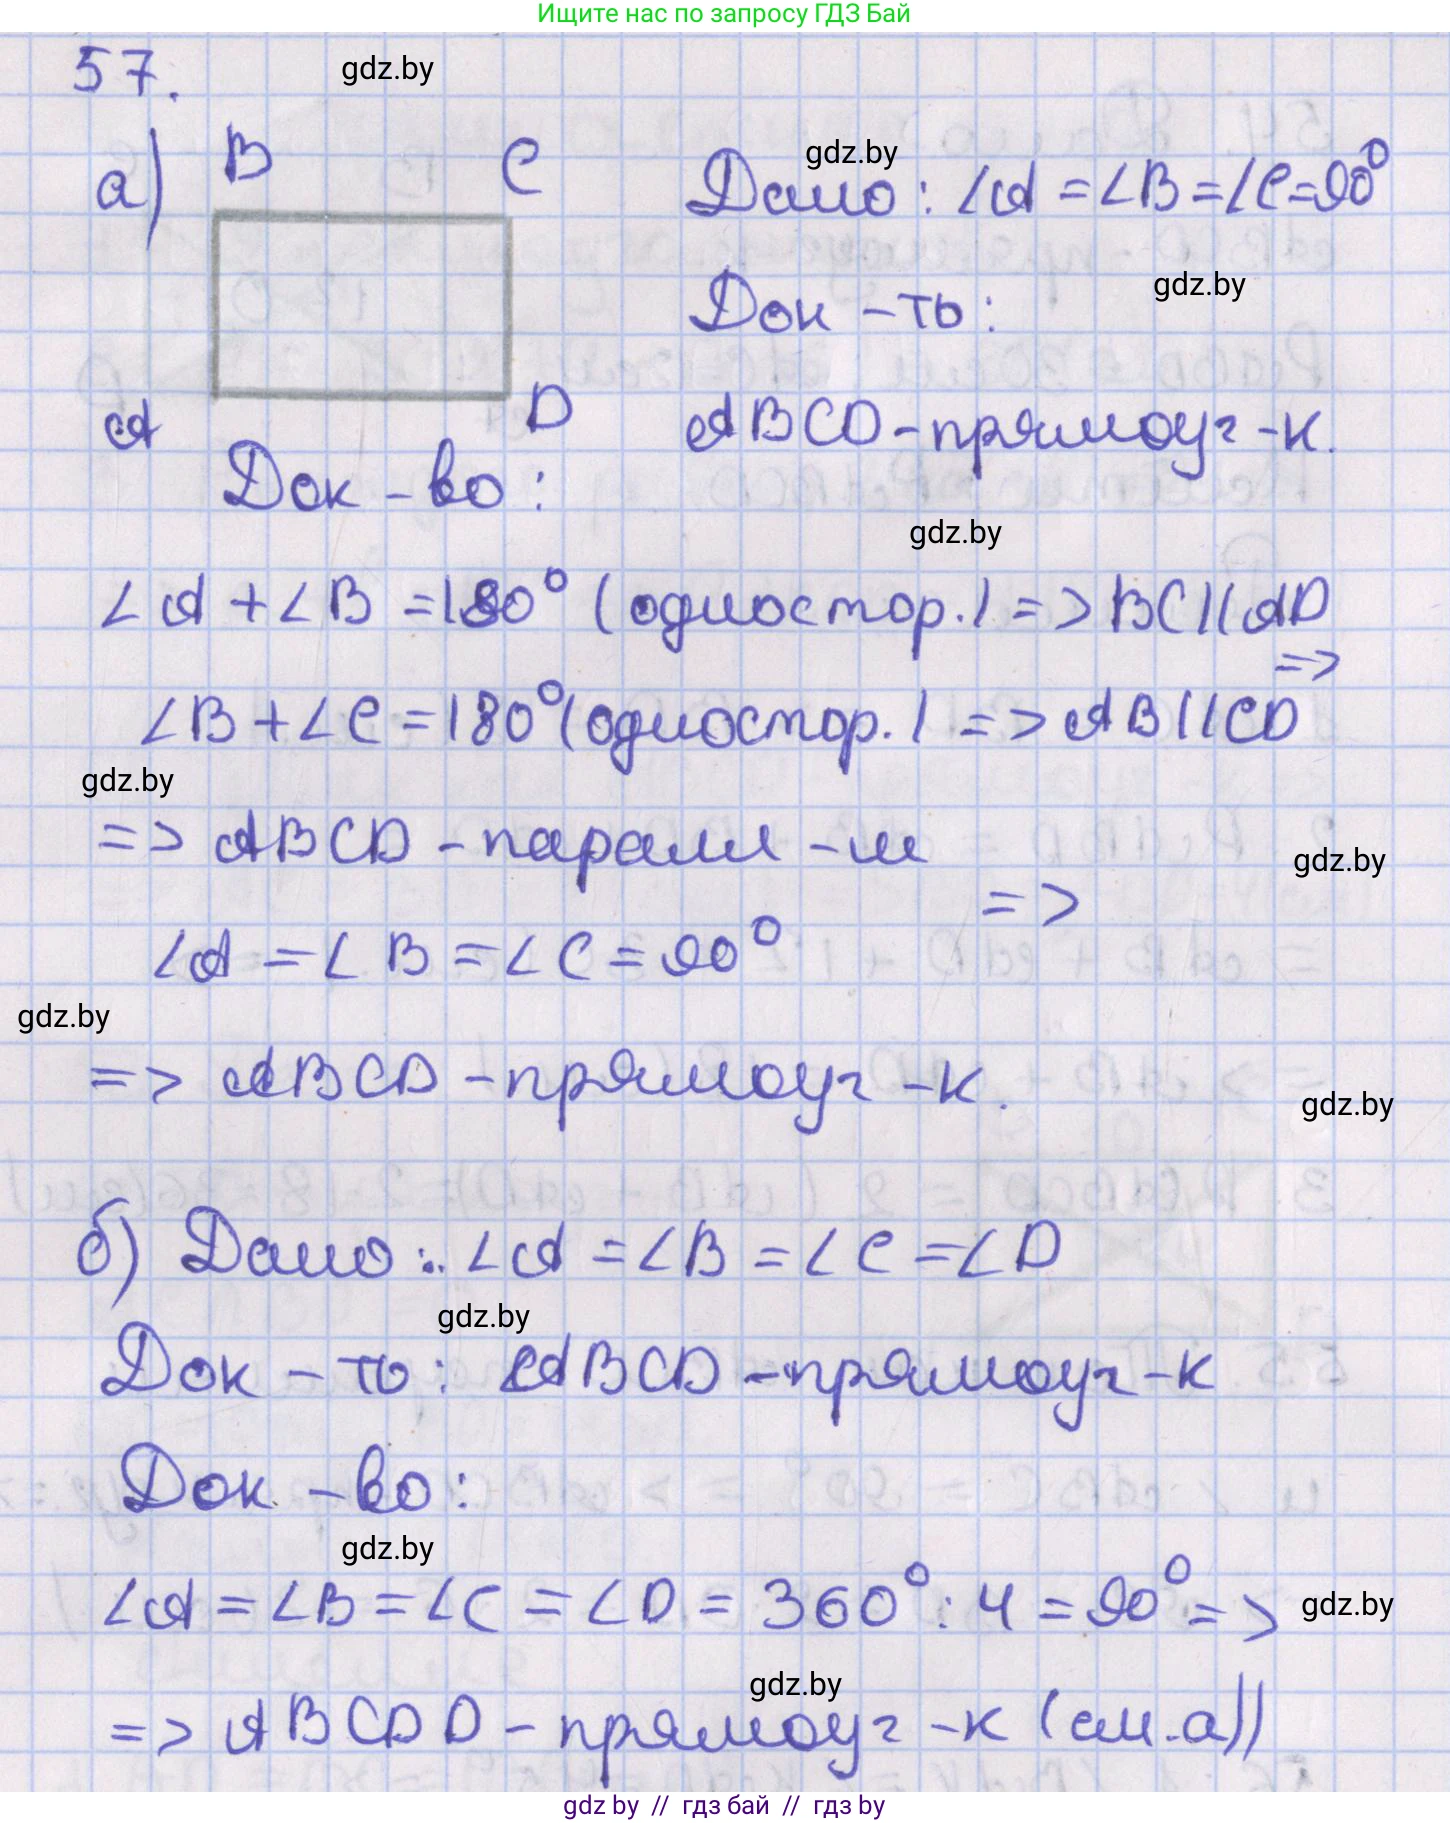 Ищите нас по запросу ГДЗ Бай
57.
gdz.by
а) B C
gdz.by
Дано: ∠A = ∠B = ∠C = 90°
gdz.by
Док-ть:
A D
ABCD - прямоуг-к.
Док-во:
gdz.by
∠A + ∠B = 180° (одностор.) => BC || AD
=>
∠B + ∠C = 180° (одностор.) => AB || CD
gdz.by
=> ABCD - паралл-м
gdz.by
=>
∠A = ∠B = ∠C = 90°
gdz.by
=> ABCD - прямоуг-к.
gdz.by
б) Дано: ∠A = ∠B = ∠C = ∠D
gdz.by
Док-ть: ABCD - прямоуг-к
Док-во:
gdz.by
∠A = ∠B = ∠C = ∠D = 360° : 4 = 90° =>
gdz.by
gdz.by
=> ABCD D - прямоуг-к (см.а))
gdz by // гдз бай // гдз by